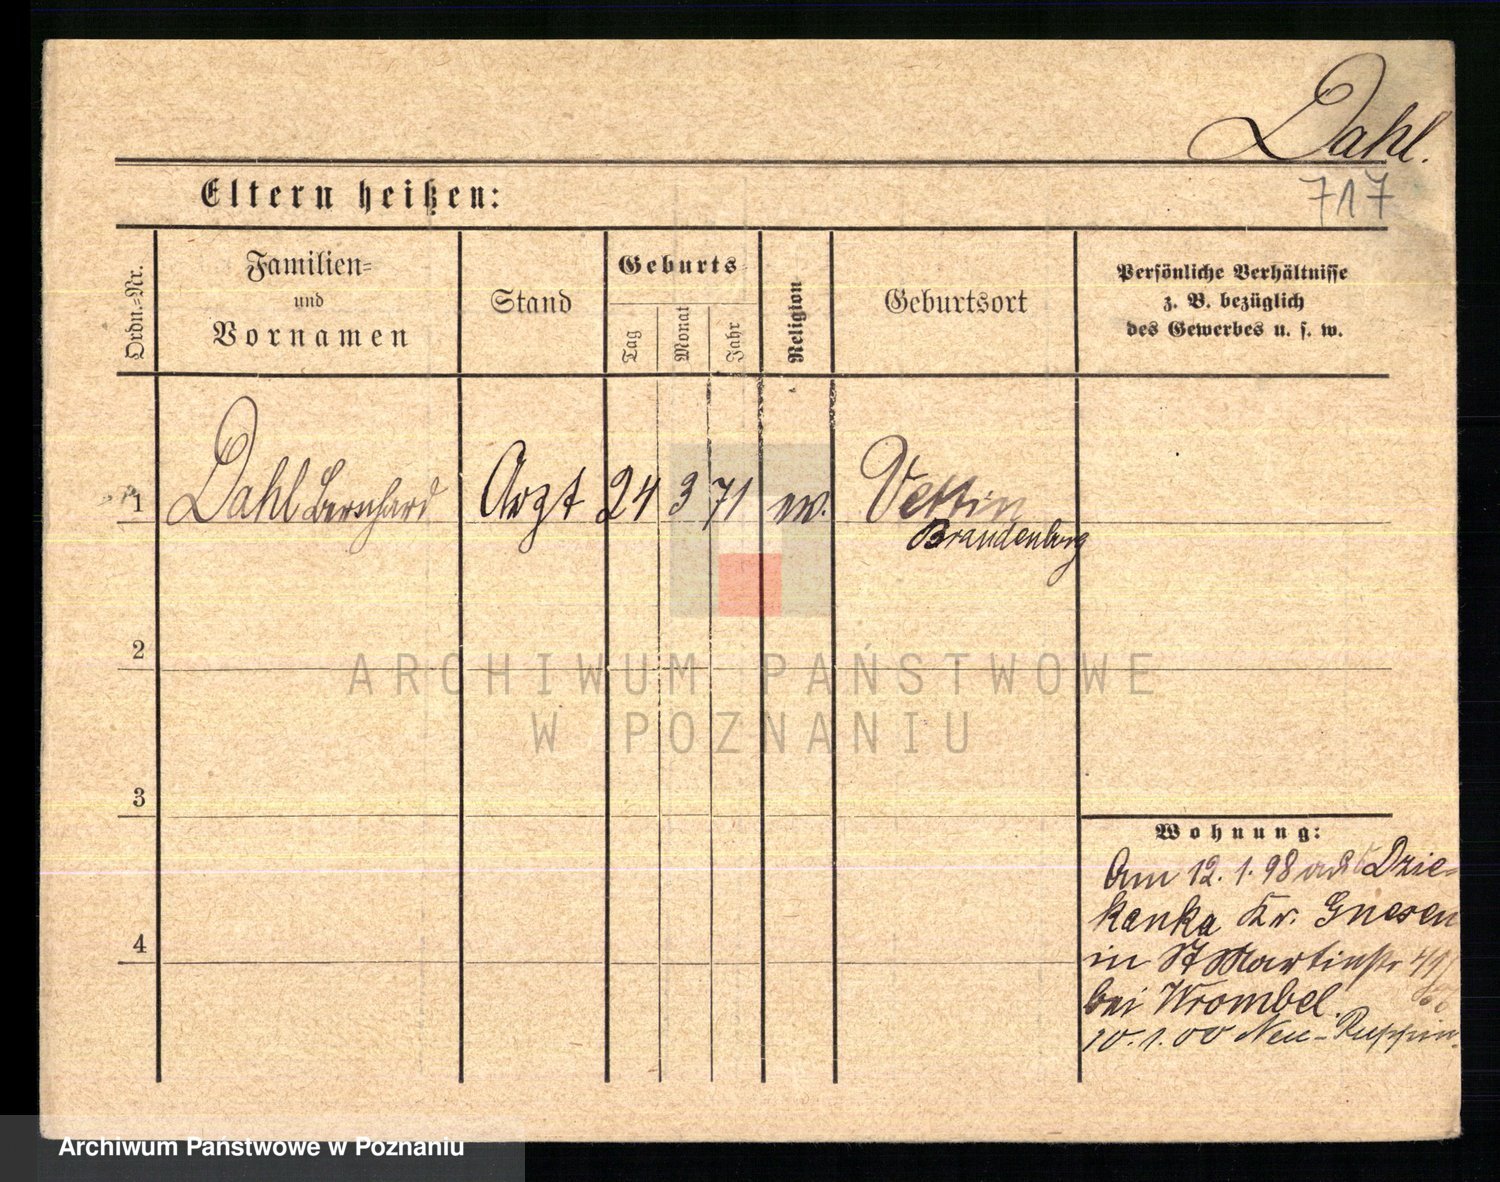 Dahl.
717
Eltern heißen:
Ordn.=Nr.
Familien=
und
Vornamen
Stand
Geburts=
Tag
Monat
Jahr
Religion
Geburtsort
Persönliche Verhältnisse
z. B. bezüglich
des Gewerbes u. s. w.
1 Dahl Bernhard Arzt 24 3 71 ev. Vettin
Brandenburg
2
ARCHIWUM PAŃSTWOWE
W POZNANIU
3
4
Wohnung:
Am 12. 1. 98 aus Dzie-
kanka Kr. Gnesen
in St Martinstr
bei Wrombel.
10. 1. 00 Neu-Ruppin.
Archiwum Państwowe w Poznaniu